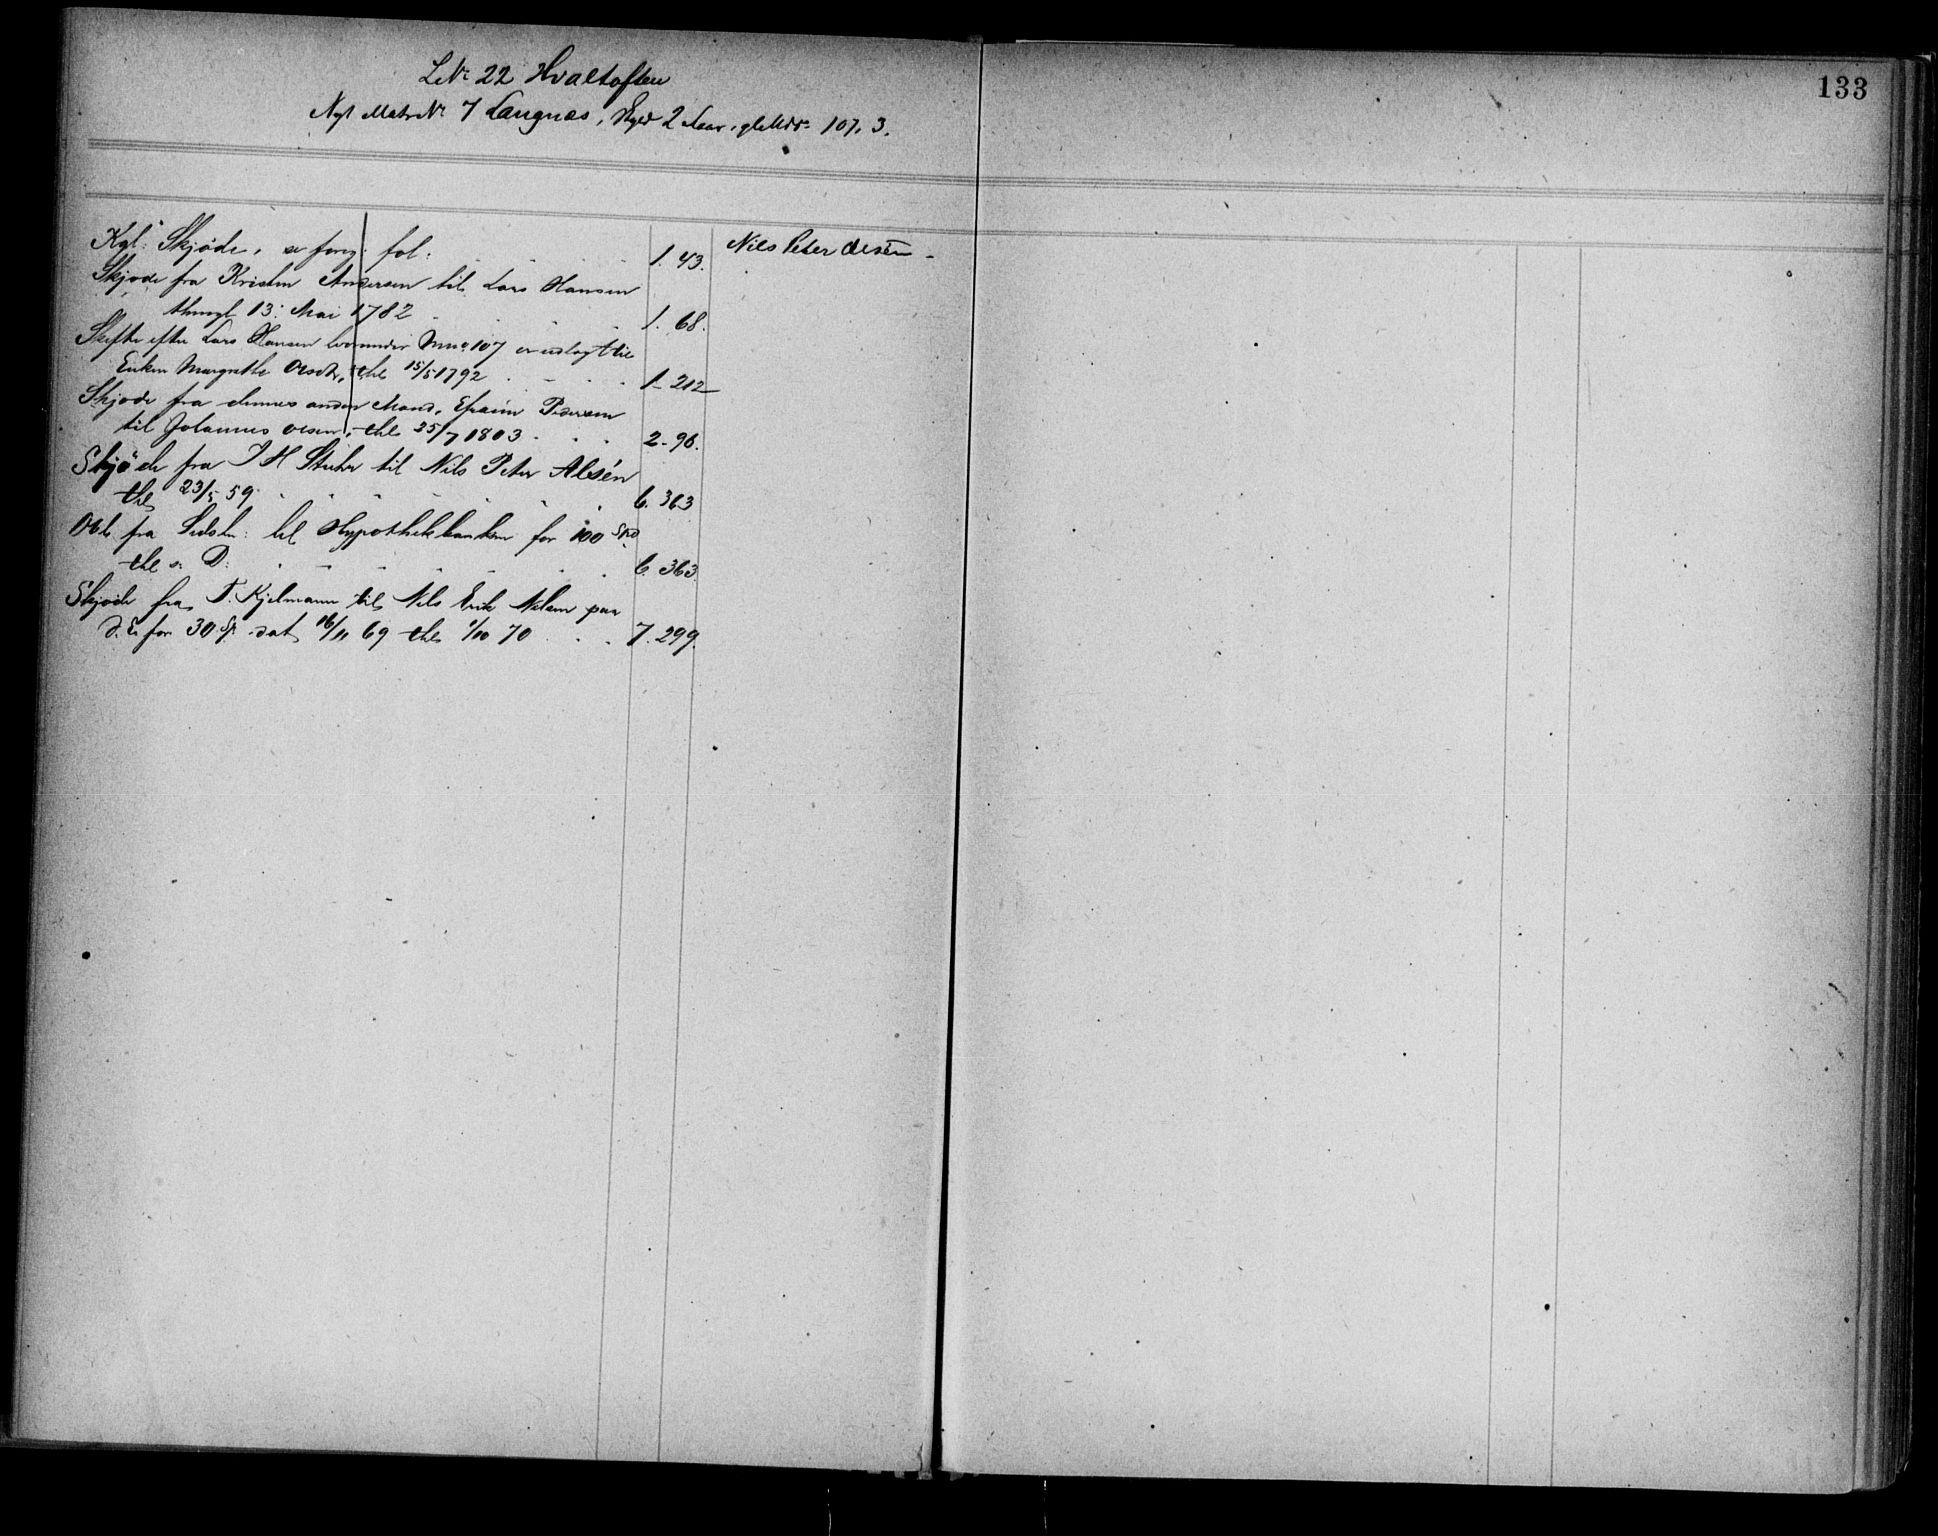 133
LNr 22 Hvaltoften
Nyt Matr Nr 7 Langnæs, Skyld 2 , gl. Mtr. 107. 3.
Kgl: Skjøde, se forrg: fol: 1. 43. Nils Peter Olsen
Skjøde fra Kristen Andersen til Lars Hansen
thingl. 13: Mai 1782 1. 68.
Skifte efter Lars Hansen hvorunder Mno 107 er udlagt til
Enken Margrethe Olsdtr, thl 15/5 1792 1- 212
Skjøde fra dennes anden Mand, Efraim Pedersen
til Johannes Olsen, thl 25/7 1803 2- 96.
Skjøde fra J H Stuhr til Nils Peter Alsén
thl 23/5 59 6. 363
Obl. fra Sidstn: til Hypothekbanken for 100 Spd
thl s. D: 6. 363
Skjøde fra T. Kjelmann til Nils Erik Nilsen paa
d. E. for 30 Sp. dat 16/11 69 thl 1/10 70 7. 299.